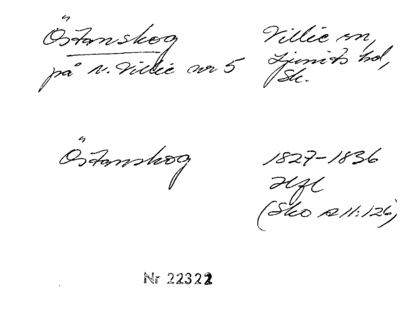 Östanskog Villie sn,
på N. Villie nr 5 Ljunits hd,
Sk.
Östanskog 1827-1836
Hfl
(Sko A II:126)
Nr 22322